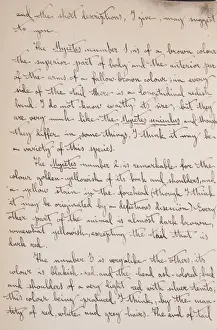 and the short descriptions, I give, may suggest
to you.
The Mycetes number 1 is of a brown colour
the superior part of body and the anterior part
of the arms of a fallow brown colour in every
side of the there is a longitudinal reddish
band. I do not know exactly its size, but they
are very much like the Mycetes and though
they differ in some things, I think it may be
a variety of this species.
The Mycetes number 2 is remarkable for the
colour golden yellowish of its back and shoulders, and
a yellow stain in the forehead (though I think
it may be originated by a disorder). Every
other part of the animal is almost dark brown,
somewhat yellowish, excepting the tail that is
dark red.
The number 3 is very like the others; its
colour is blackish red and the head ash colored; back
and shoulders of a very light red with silver tints,
this colour being produced, I think, by the
of red, white and grey hairs. The end of tail